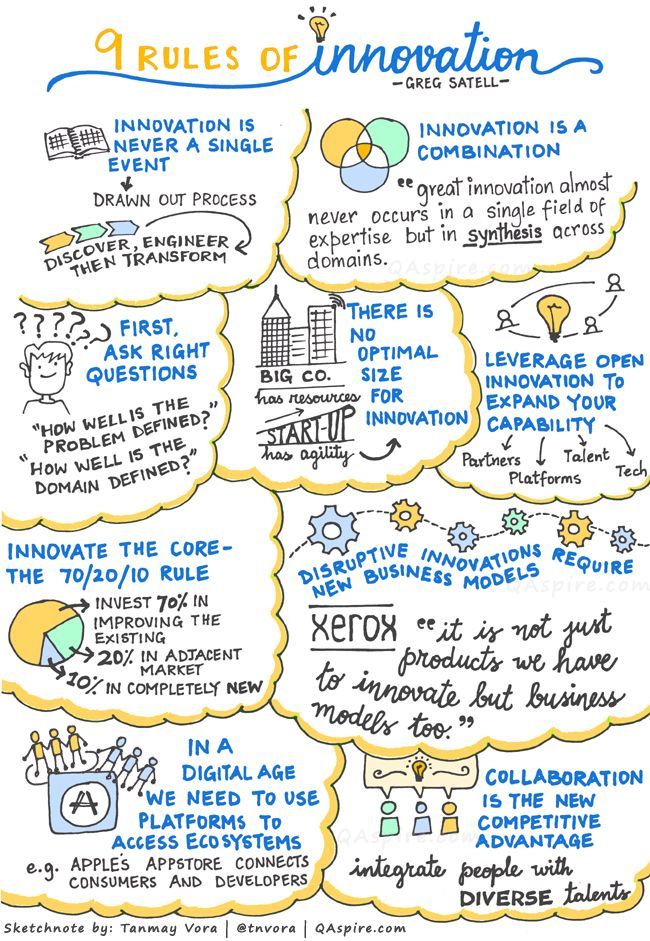 9 RULES OF innovation
-GREG SATELL-
INNOVATION IS
NEVER A SINGLE
EVENT
DRAWN OUT PROCESS
DISCOVER, ENGINEER
THEN TRANSFORM
INNOVATION IS A
COMBINATION
"great innovation almost
never occurs in a single field of
expertise but in synthesis across
domains.
QAspire.com
????
??
FIRST,
ASK RIGHT
QUESTIONS
"HOW WELL IS THE
PROBLEM DEFINED?"
"HOW WELL IS THE
DOMAIN DEFINED?"
BIG CO.
has resources
START-UP
has agility
THERE IS
NO
OPTIMAL
SIZE
FOR
INNOVATION
LEVERAGE OPEN
INNOVATION TO
EXPAND YOUR
CAPABILITY
Partners
Platforms
Talent
Tech
INNOVATE THE CORE-
THE 70/20/10 RULE
INVEST 70% IN
IMPROVING THE
EXISTING
20% IN ADJACENT
MARKET
10% IN COMPLETELY NEW
DISRUPTIVE INNOVATIONS REQUIRE
NEW BUSINESS MODELS
QAspire.com
xerox
"it is not just
products we have
to innovate but business
models too."
IN A
DIGITAL AGE
WE NEED TO USE
PLATFORMS TO
ACCESS ECOSYSTEMS
A
e.g. APPLE'S APPSTORE CONNECTS
CONSUMERS AND DEVELOPERS
COLLABORATION
IS THE NEW
COMPETITIVE
ADVANTAGE
QAspire.com
integrate people with
DIVERSE talents
Sketchnote by: Tanmay Vora | @tnvora | QAspire.com